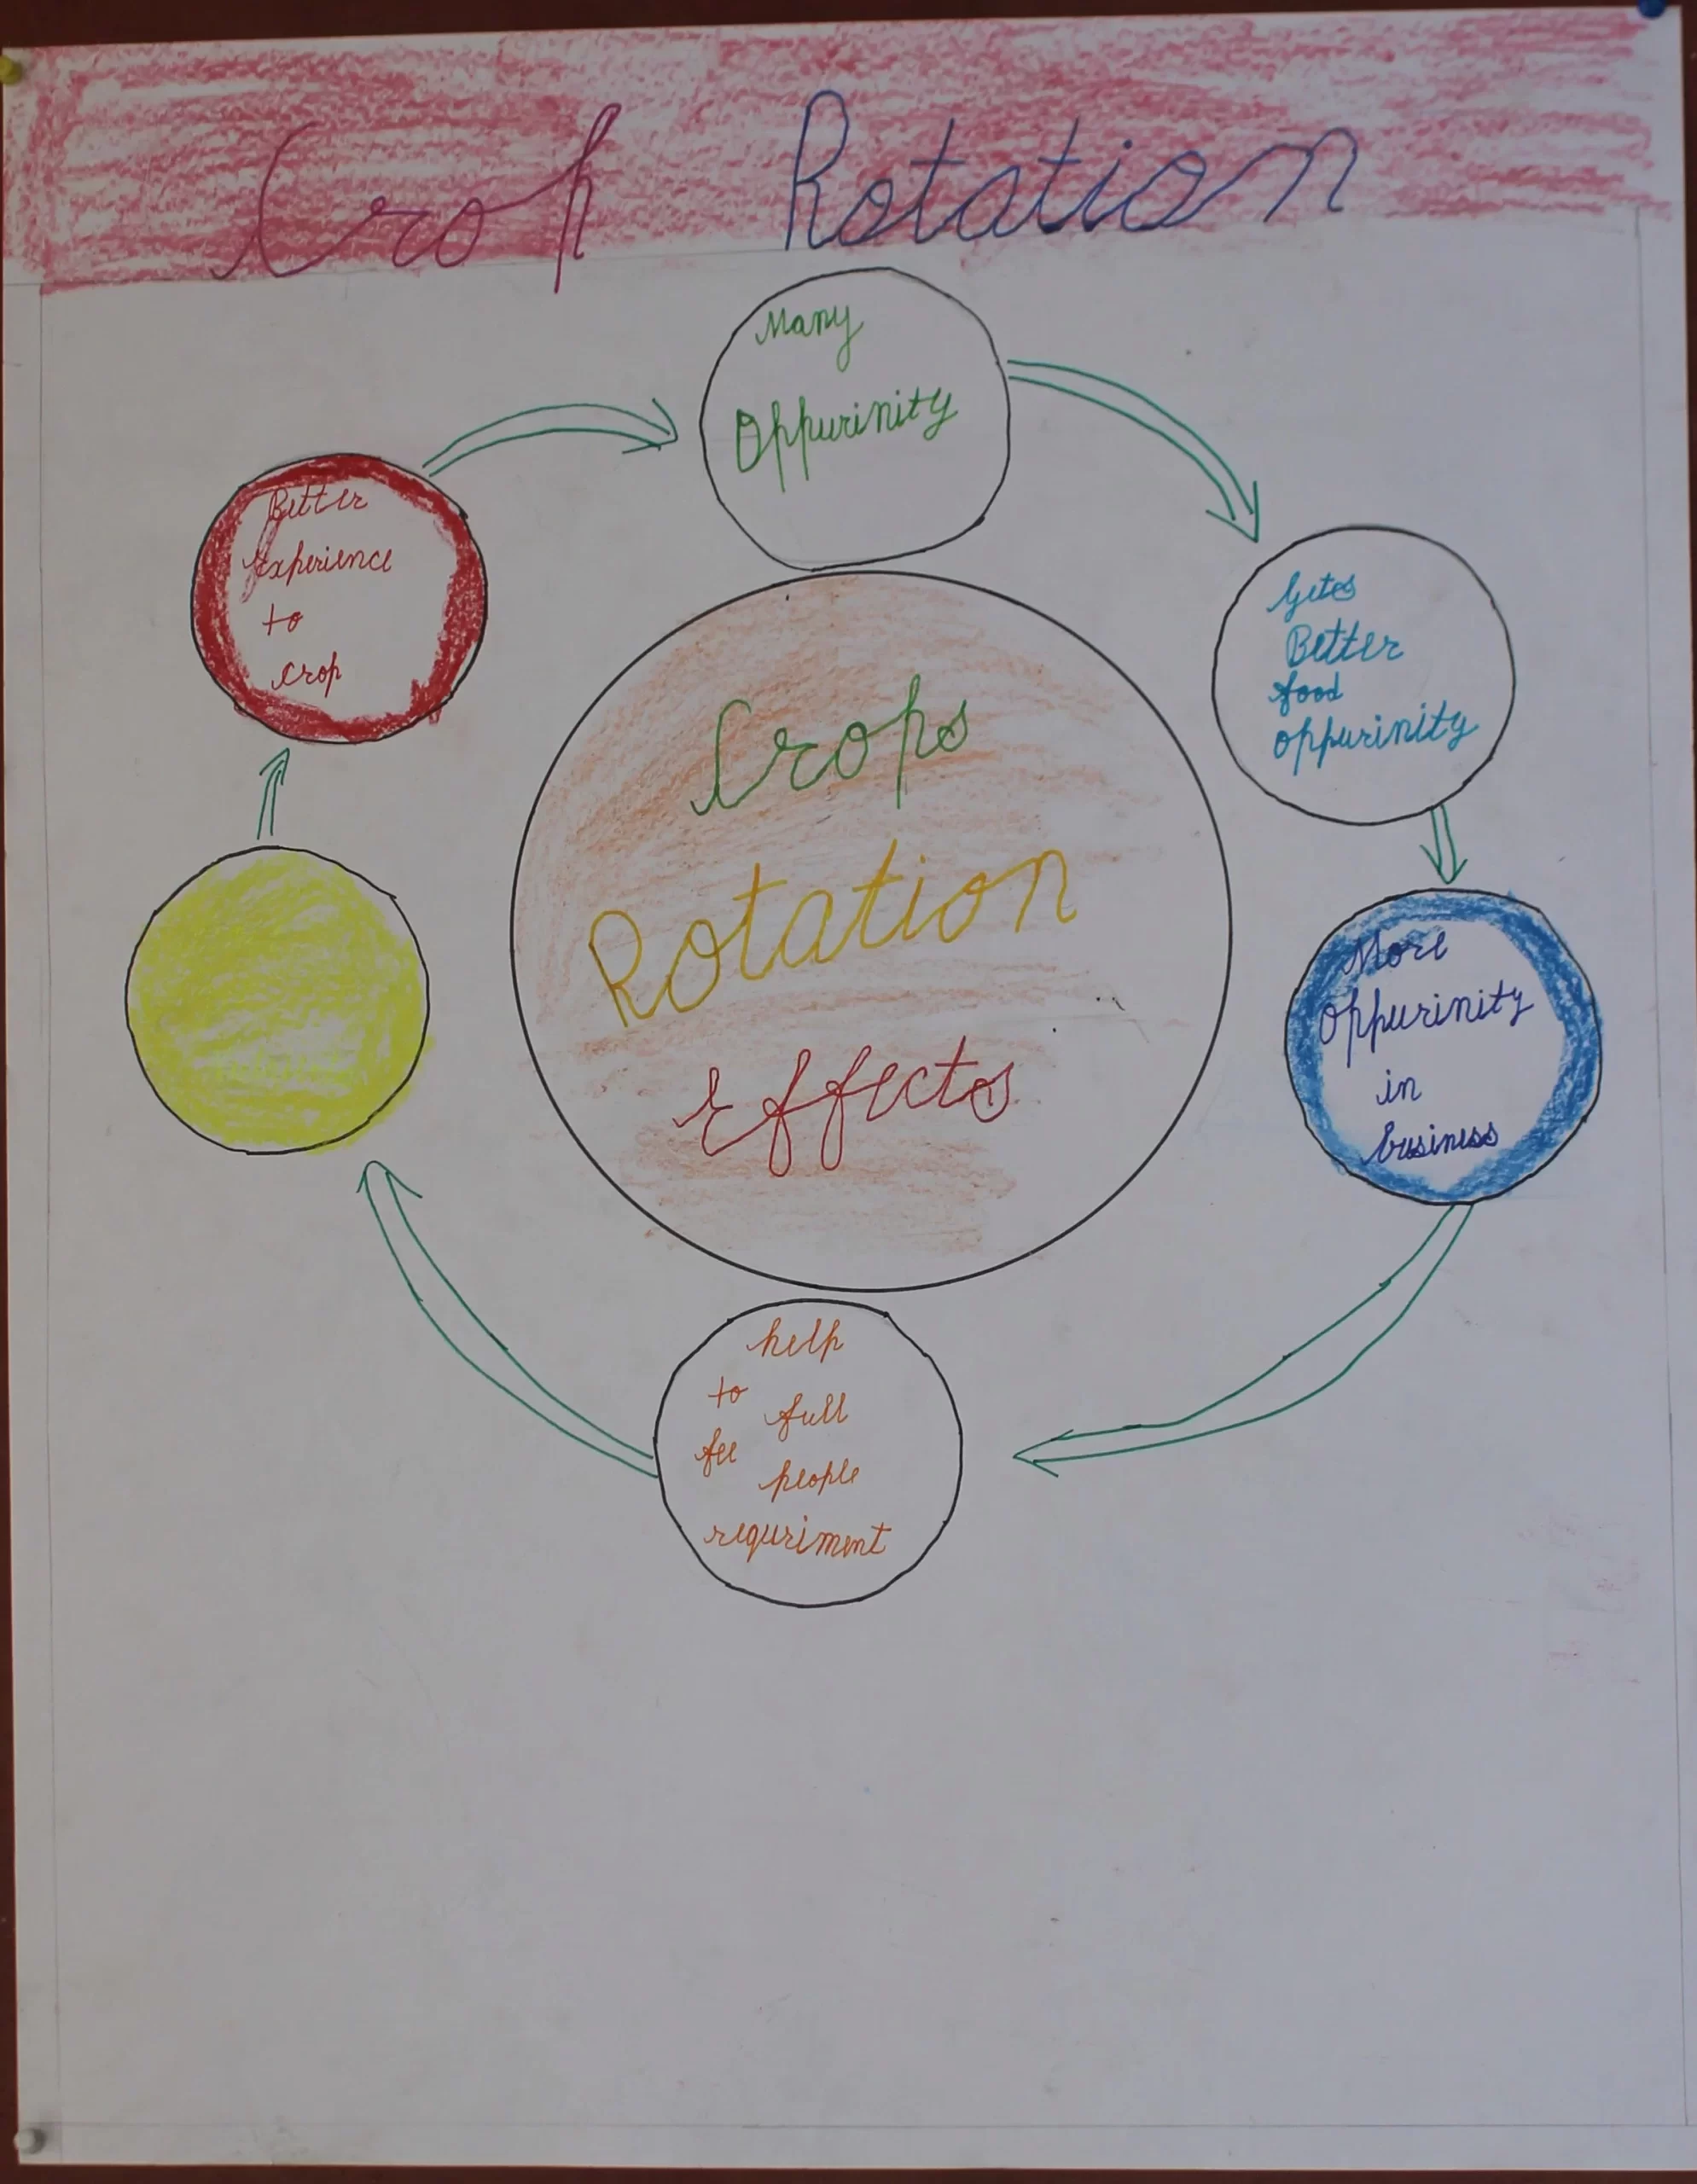 Crop Rotation
Many
Oppurinity
Getes
Better
food
oppurinity
More
oppurinity
in
business
help
to full
fee people
requriment
Better
experience
to
crop
Crops
Rotation
Effects